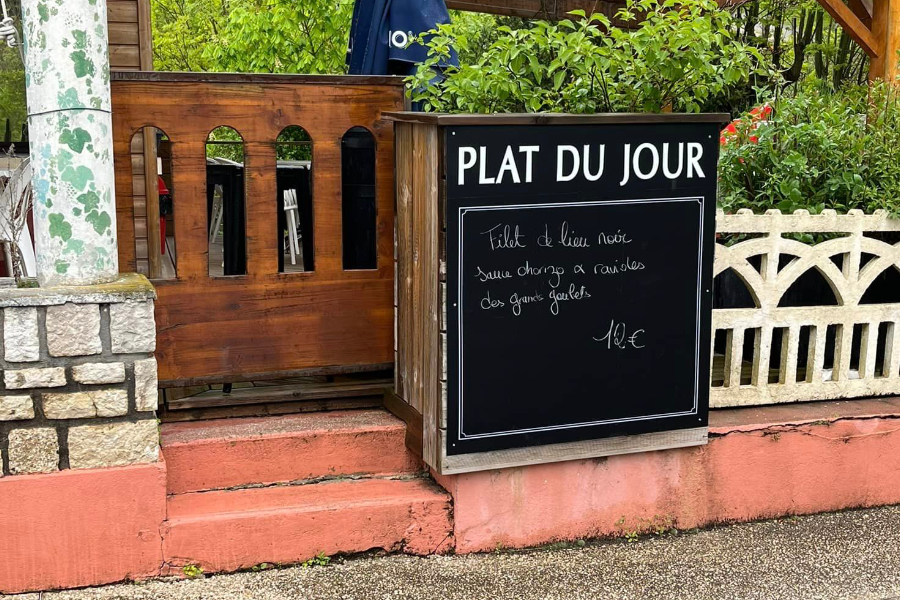 PLAT DU JOUR
Filet de lieu noir
sauce chorizo & ravioles
des grands goulets
12€